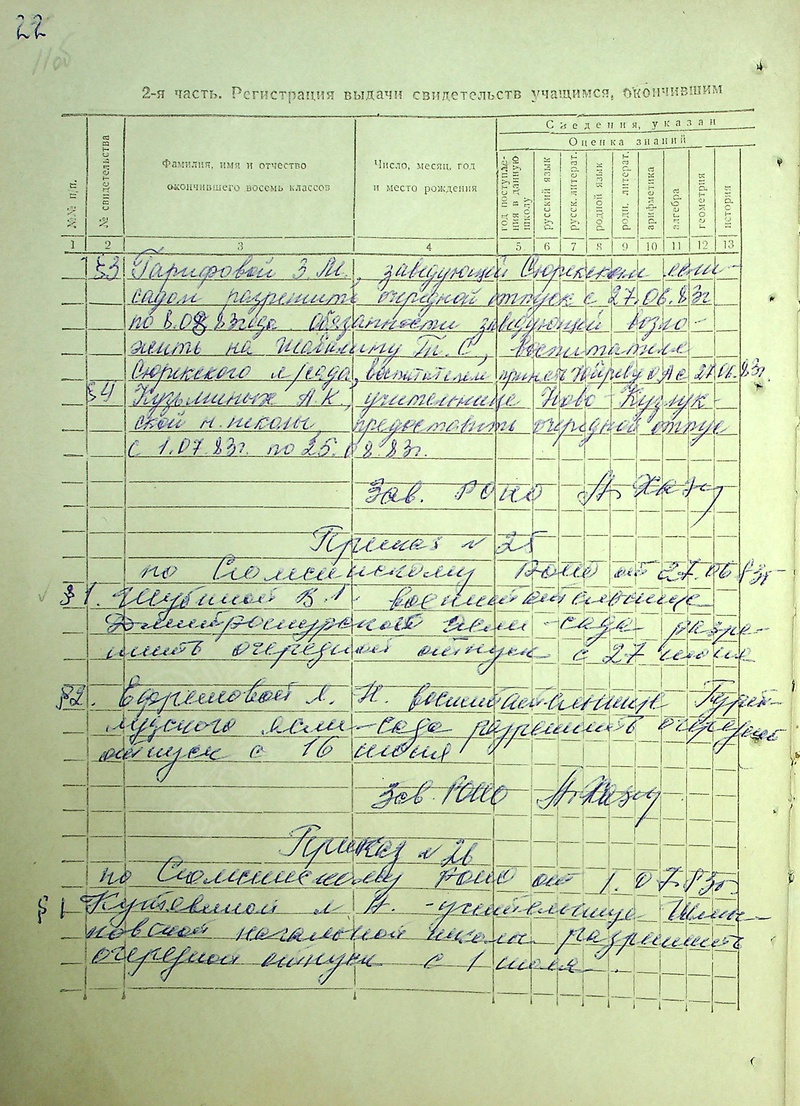 22
11об
2-я часть. Регистрация выдачи свидетельств учащимся, окончившим
№№ п/п.
№ свидетельства
Фамилия, имя и отчество
окончившего восемь классов
Число, месяц, год
и место рождения
Сведения, указан
Оценка знаний
год поступле-
ния в данную
школу
русский язык
русск. литерат.
родной язык
родн. литерат.
арифметика
алгебра
геометрия
история
1 2 3 4 5 6 7 8 9 10 11 12 13
§3 Гарифовой З.М., заведующей Сюрекским ясли-
садом разрешить очередной отпуск с 27.06.83г
по 8.08 83года. Обязанности заведующей возло-
жить на Т.С., воспитателя
Сюрекского я/сада, воспитателем принять О.А с 27.06.83г.
§4 Кузьминых А.К., учительнице Ново-Кузлук-
ской н. школы, предоставить очередной отпус
с 1.07.83г. по 25.08.83г.
Зав. РОНО
Приказ № 25
по Сюмсинскому Роно от 27.06.83г
§1. Шубиной В.Л. воспитательнице
ясли-сада разре-
шить очередной отпуск с 27 июня
§2. Ефремовой Л. Н. воспитательнице Гурез-
лудского ясли-сада разрешить очередной
отпуск с 16 июня
Зав. РОНО
Приказ № 26
по Сюмсинскому Роно от 1.07.83г.
§1 Кутявиной Л А. - учительнице
начальной школы разрешить
очередной отпуск с 1 июля.